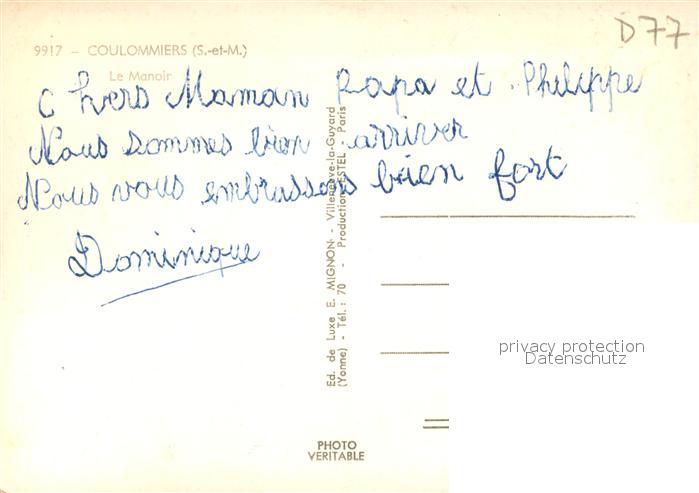 D77
9917 - COULOMMIERS (S.-et-M.)
Le Manoir
Chers Maman Papa et Philippe
Nous sommes bien arriver
Nous vous embrassons bien fort
Dominique
Ed. de Luxe E. MIGNON - Villeneuve-la-Guyard
(Yonne) - Tél. : 70 - Production LESTEL - Paris
privacy protection
Datenschutz
PHOTO
VERITABLE